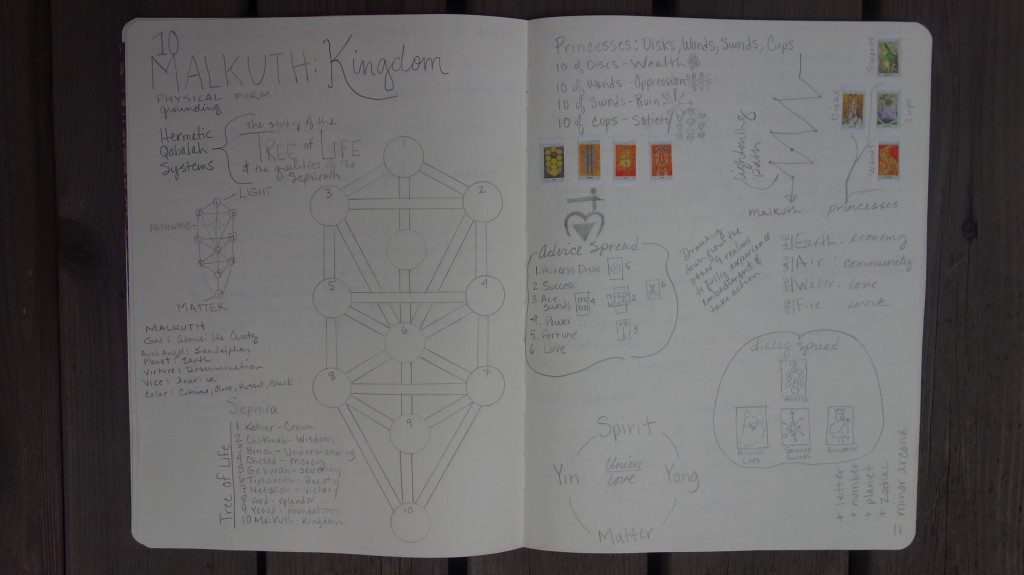 10
MALKUTH: Kingdom
PHYSICAL FORM
grounding
Hermetic
Qabalah
Systems
The study of the
TREE OF LIFE
& the qualities of the
Sephiroth
LIGHT
MATTER
1
3
2
5
4
6
8
7
9
10
MALKUTH
God:
Arch Angel: Sandalphon
Planet: Earth
Virture: Discrimination
Vice:
Color: Citrine, Olive, Russet, Black
Sephira
Tree of Life
1 Kether - Crown
2 Chokmah - Wisdom
3 Binah - Understanding
4 Chesed - Mercy
5 Geburah - Severity
6 Tiphareth - Beauty
7 Netzach - Victory
8 Hod - Splendor
9 Yesod - Foundation
10 Malkuth - Kingdom
Princesses: Disks, Wands, Swords, Cups
10 of Discs - Wealth
10 of Wands - Oppression
10 of Swords - Ruin
10 of Cups - Satiety
lightening
path
Malkuth
Swords
Disks
Cups
Wands
princesses
Advice Spread
1. Princess Disks
2 Success
3 Ace
Swords
4. Power
5. Fortune
6. Love
5
4
2
6
3
Drawing
down from the
other 9 realms
to fully experience
embodiment &
take action
Earth: economy
Air: community
Water: love
Fire: work
dialog spread
Spirit
Yin
Union
Love
Yang
Matter
+ letter
+ number
+ planet
+ zodiac
= minor arcana